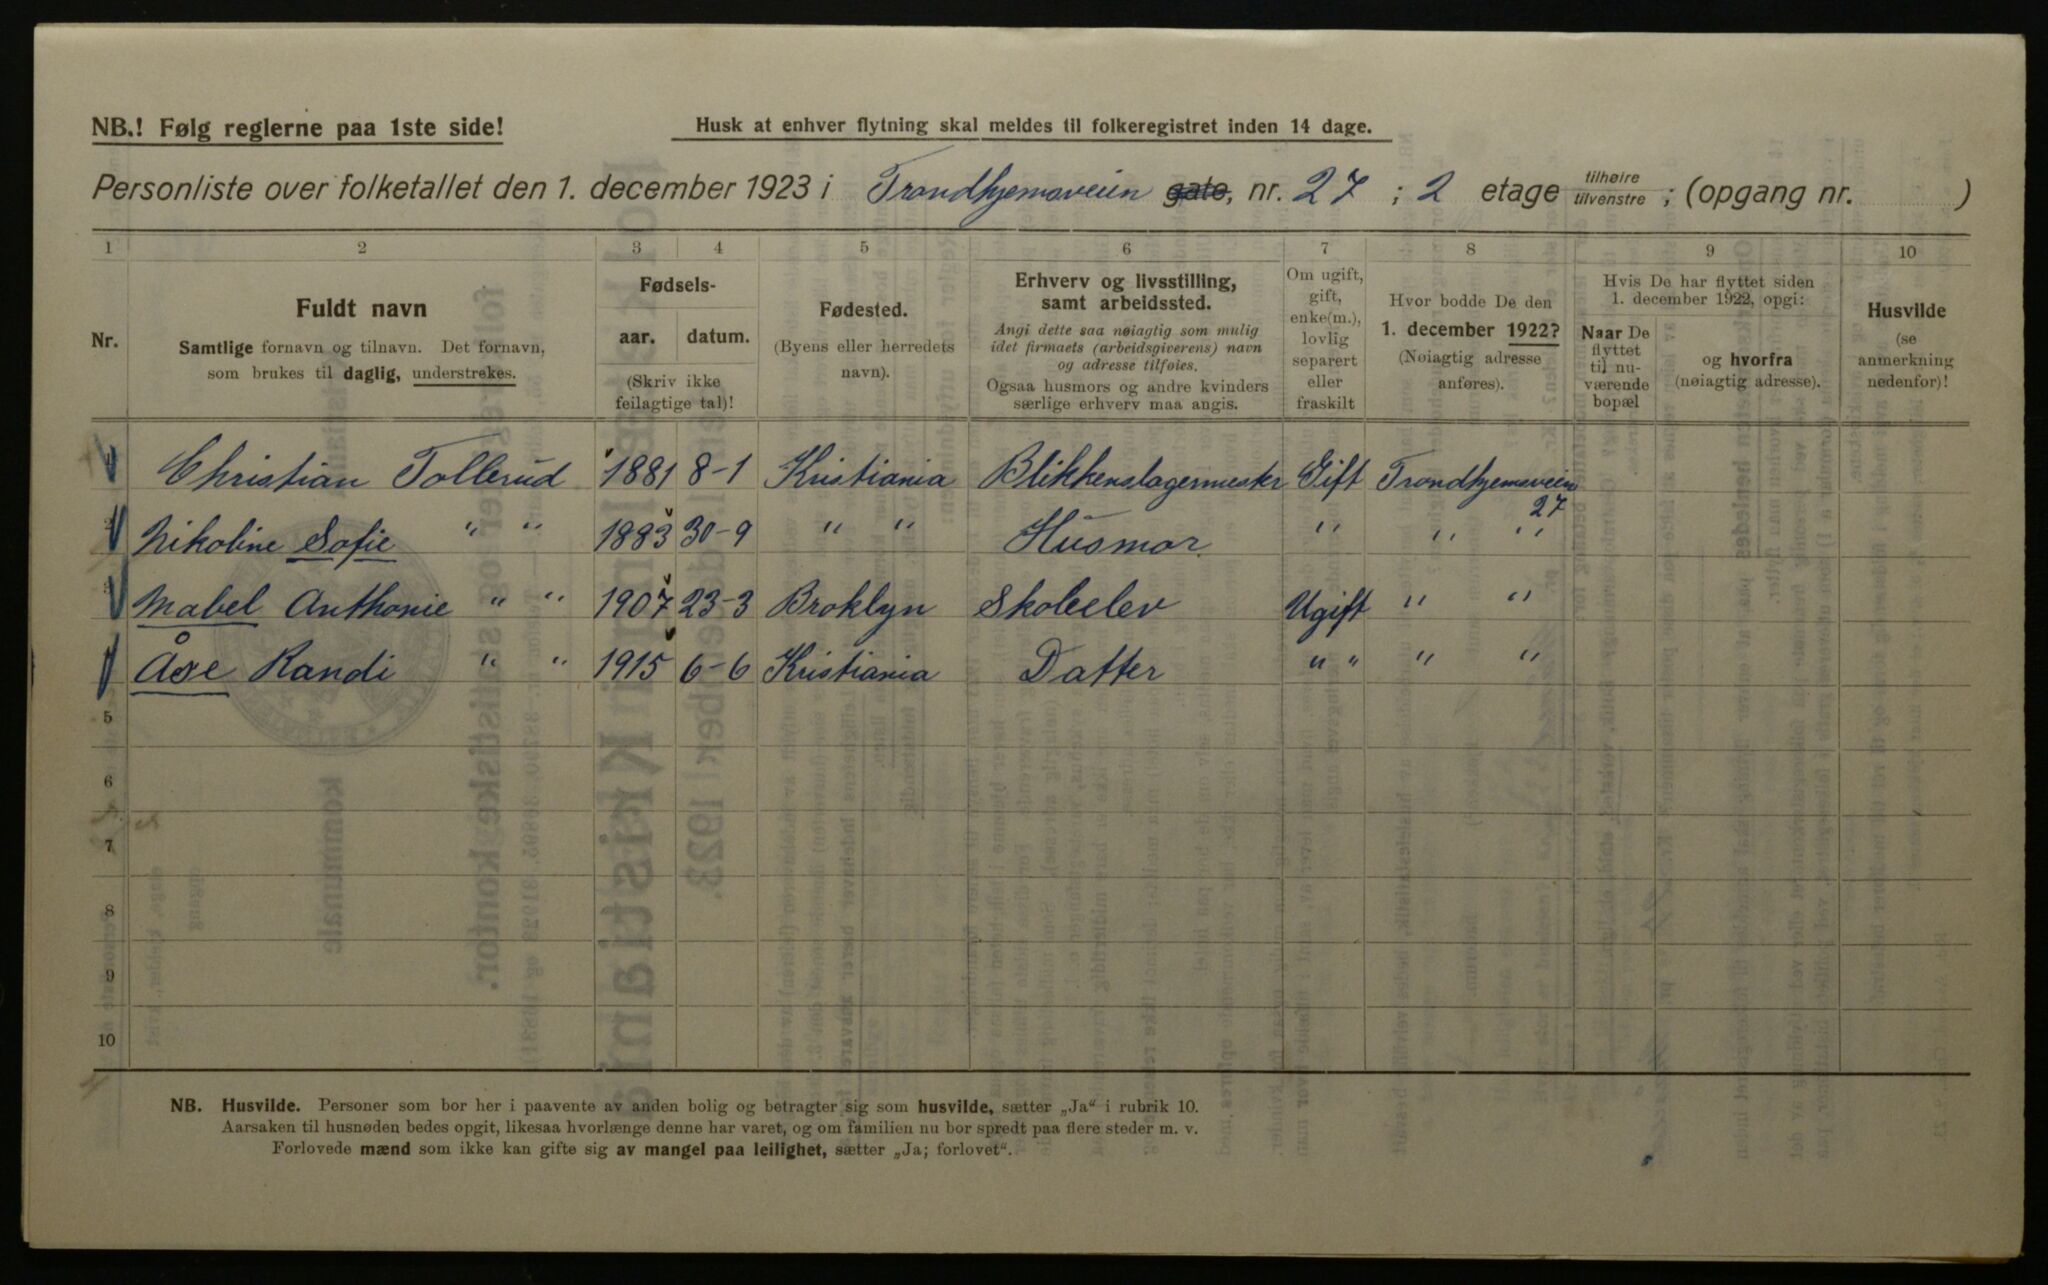 NB.! Følg reglerne paa 1ste side!
Husk at enhver flytning skal meldes til folkeregistret inden 14 dage.
Personliste over folketallet den 1. december 1923 i Trondhjemsveien gate, nr. 27 ; 2 etage tilhøire tilvenstre ; (opgang nr. )
1 2 3 4 5 6 7 8 9 10
Nr.
Fuldt navn
Samtlige fornavn og tilnavn. Det fornavn,
som brukes til daglig, understrekes.
Fødsels-
aar. datum.
(Skriv ikke
feilagtige tal)!
Fødested.
(Byens eller herredets
navn).
Erhverv og livsstilling,
samt arbeidssted.
Angi dette saa nøiagtig som mulig
idet firmaets (arbeidsgiverens) navn
og adresse tilføies.
Ogsaa husmors og andre kvinders
særlige erhverv maa angis.
Om ugift,
gift,
enke(m.),
lovlig
separert
eller
fraskilt
Hvor bodde De den
1. december 1922?
(Nøiagtig adresse
anføres).
Hvis De har flyttet siden
1. december 1922, opgi:
Naar De
flyttet
til nu-
værende
bopæl
og hvorfra
(nøiagtig adresse).
Husvilde
(se
anmerkning
nedenfor)!
Christian Tollerud 1881 8-1 Kristiania Blikkenslagermester Gift Trondhjemsveien
27
Nikoline Sofie " " 1883 30-9 " " Husmor " " "
Mabel Anthonie " " 1907 23-3 Broklyn Skoleelev Ugift " "
Åse Randi " " 1915 6-6 Kristiania Datter " " " "
5
6
7
8
9
10
NB. Husvilde. Personer som bor her i paavente av anden bolig og betragter sig som husvilde, sætter „Ja“ i rubrik 10.
Aarsaken til husnøden bedes opgit, likesaa hvorlænge denne har varet, og om familien nu bor spredt paa flere steder m. v.
Forlovede mænd som ikke kan gifte sig av mangel paa leilighet, sætter „Ja; forlovet“.